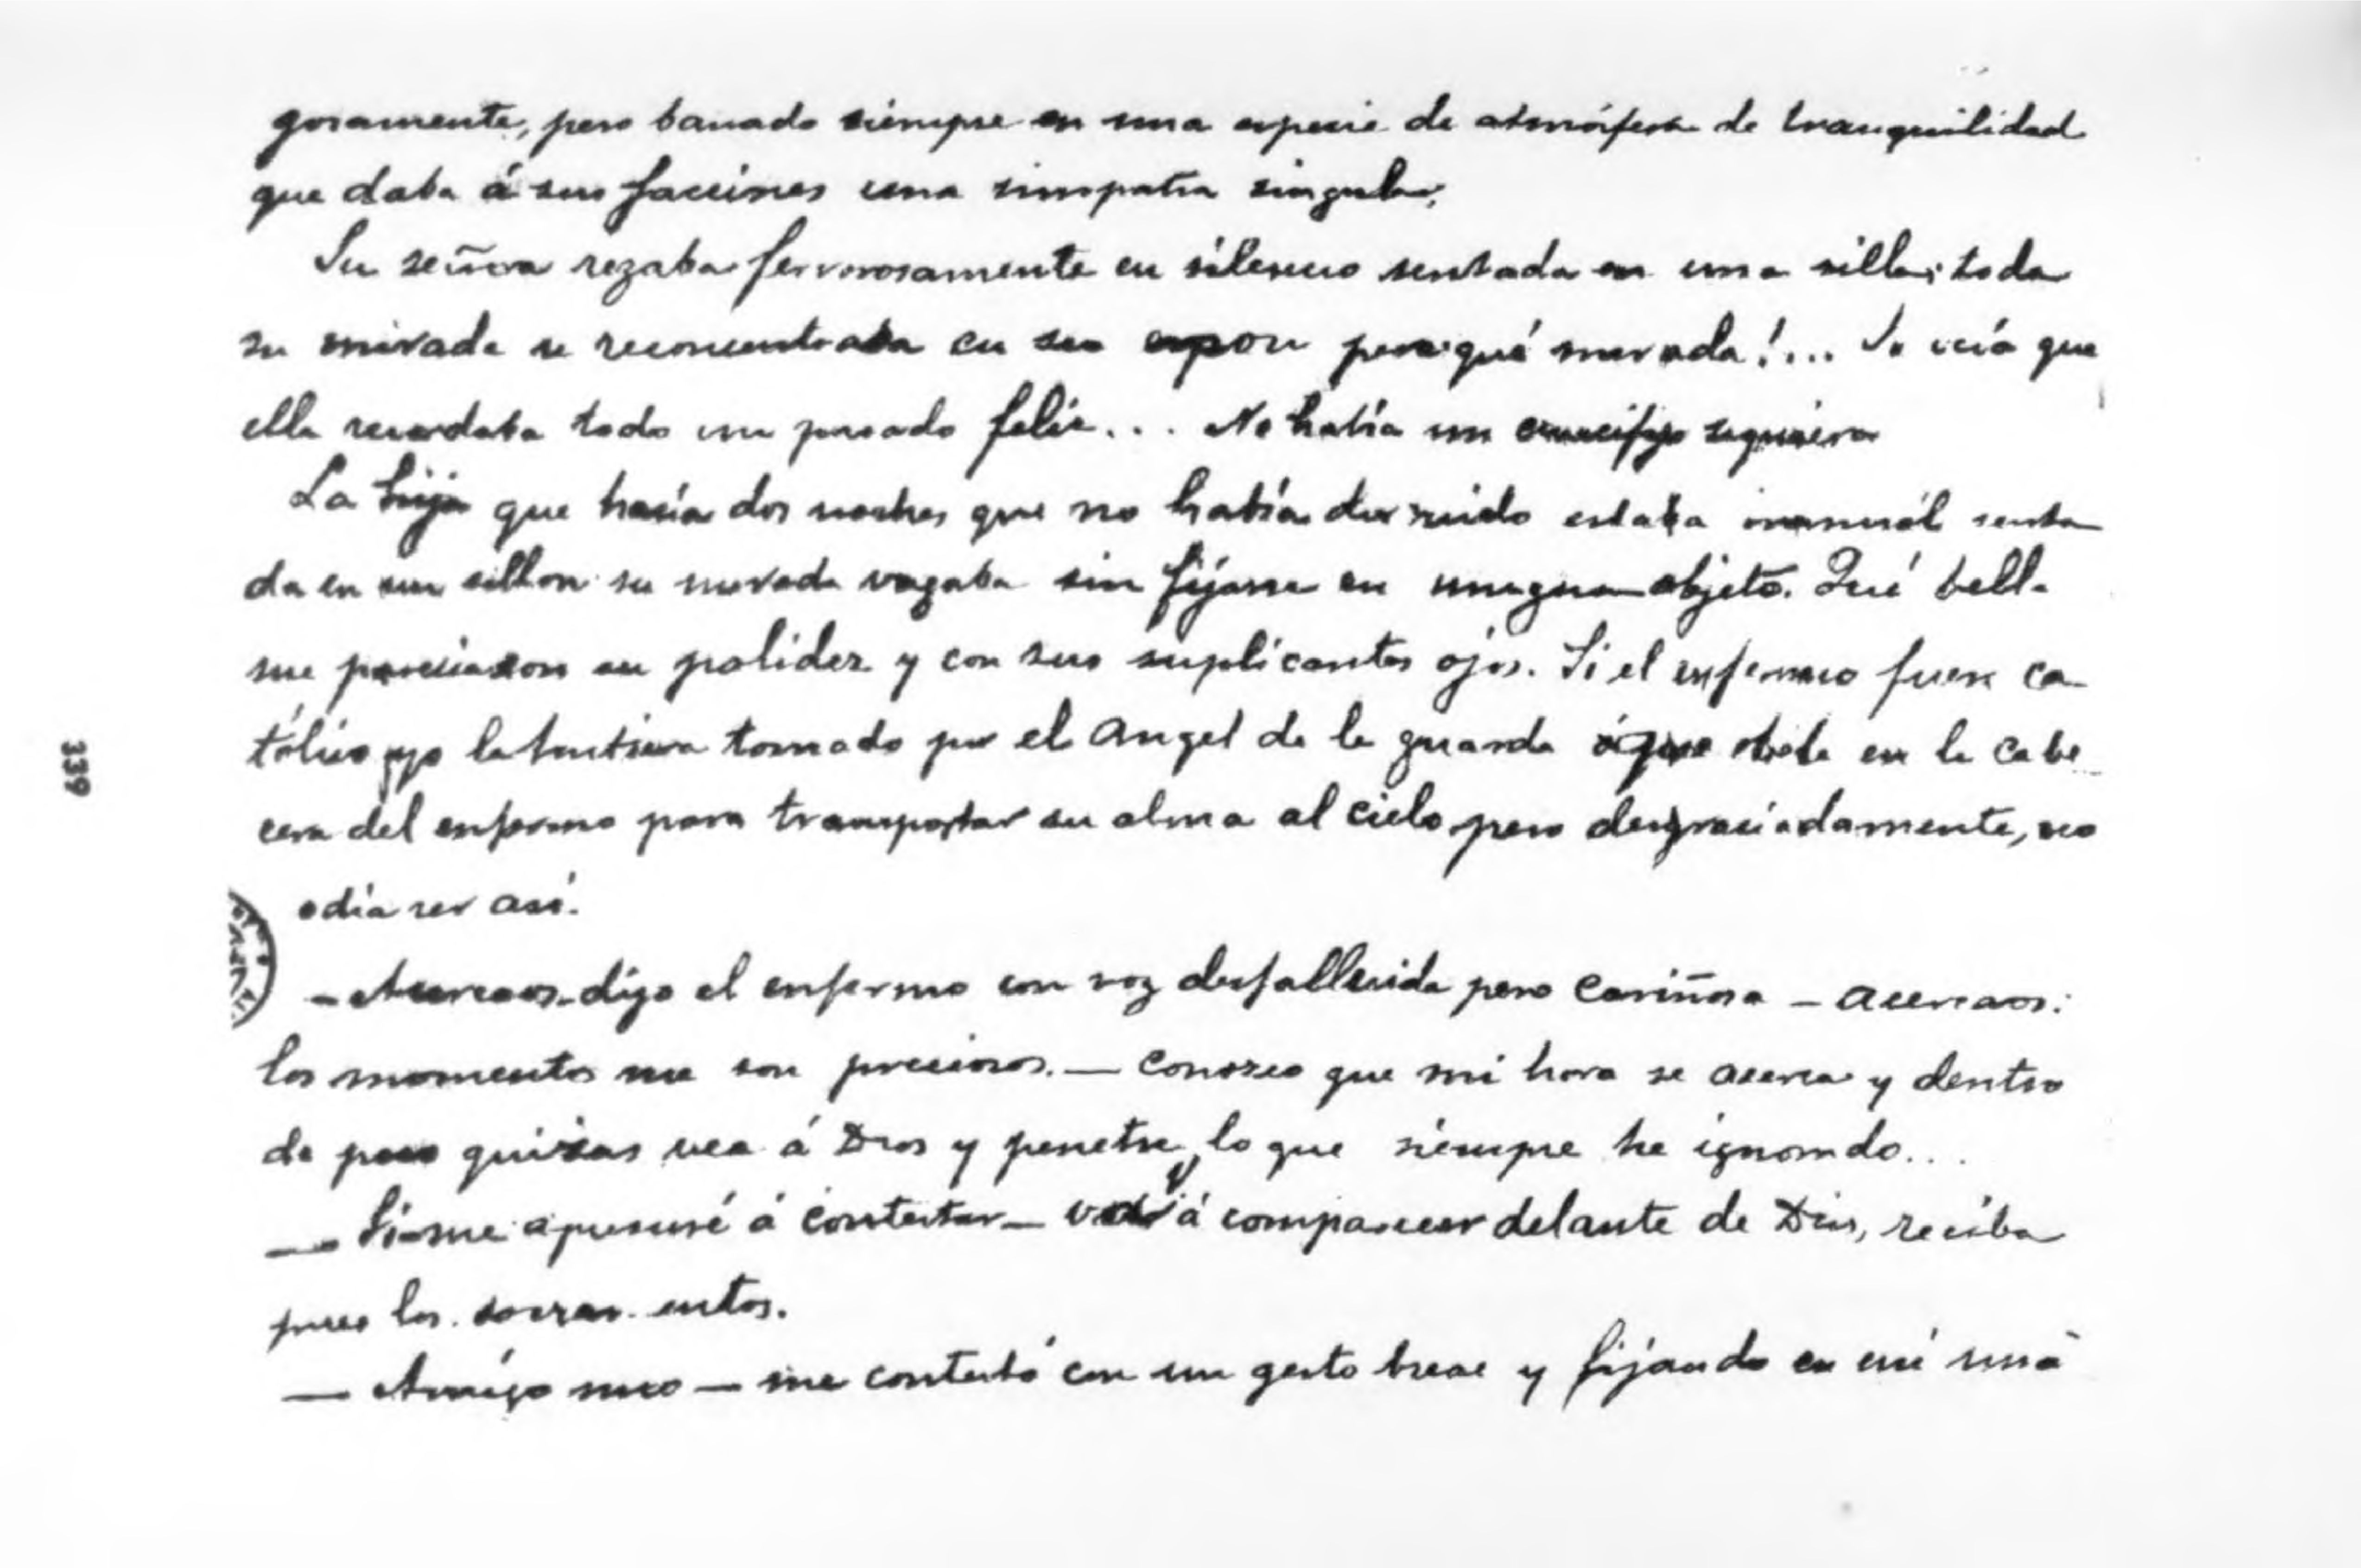 gosamente, pero bañado siempre en una especie de atmósfera de tranquilidad
que daba á sus facciones una simpatía singular.
Su señora rezaba fervorosamente en silencio sentada en una silla; toda
su mirada se reconcentraba en su espos pero qué mirada!... Yo veía que
ella recordaba todo un pasado feliz... No había un crucifijo siquiera
La hija que hacía dos noches que no había dormido estaba inmovil senta
da en un sillon su mirada vagaba sin fijarse en ningun objeto. Qué bella
me parecia con su palidez y con sus suplicantes ojos. Si el enfermo fuese ca-
tólico yo la hubiera tomado por el Angel de la guarda que vela en la cabe
cera del enfermo para transportar su alma al cielo pero desgraciadamente, no
odía ser así.
- Acercaos - dijo el enfermo con voz desfallecida pero cariñosa - acercaos:
los momentos me son preciosos. — Conozco que mi hora se acerca y dentro
de poco quizas vea á Dios y penetre lo que siempre he ignorado...
— Si - me apresuré á contestar — va á comparecer delante de Dios, reciba
pues los sacramentos.
— Amigo mio — me contestó con un gesto breve y fijando en mí una
339